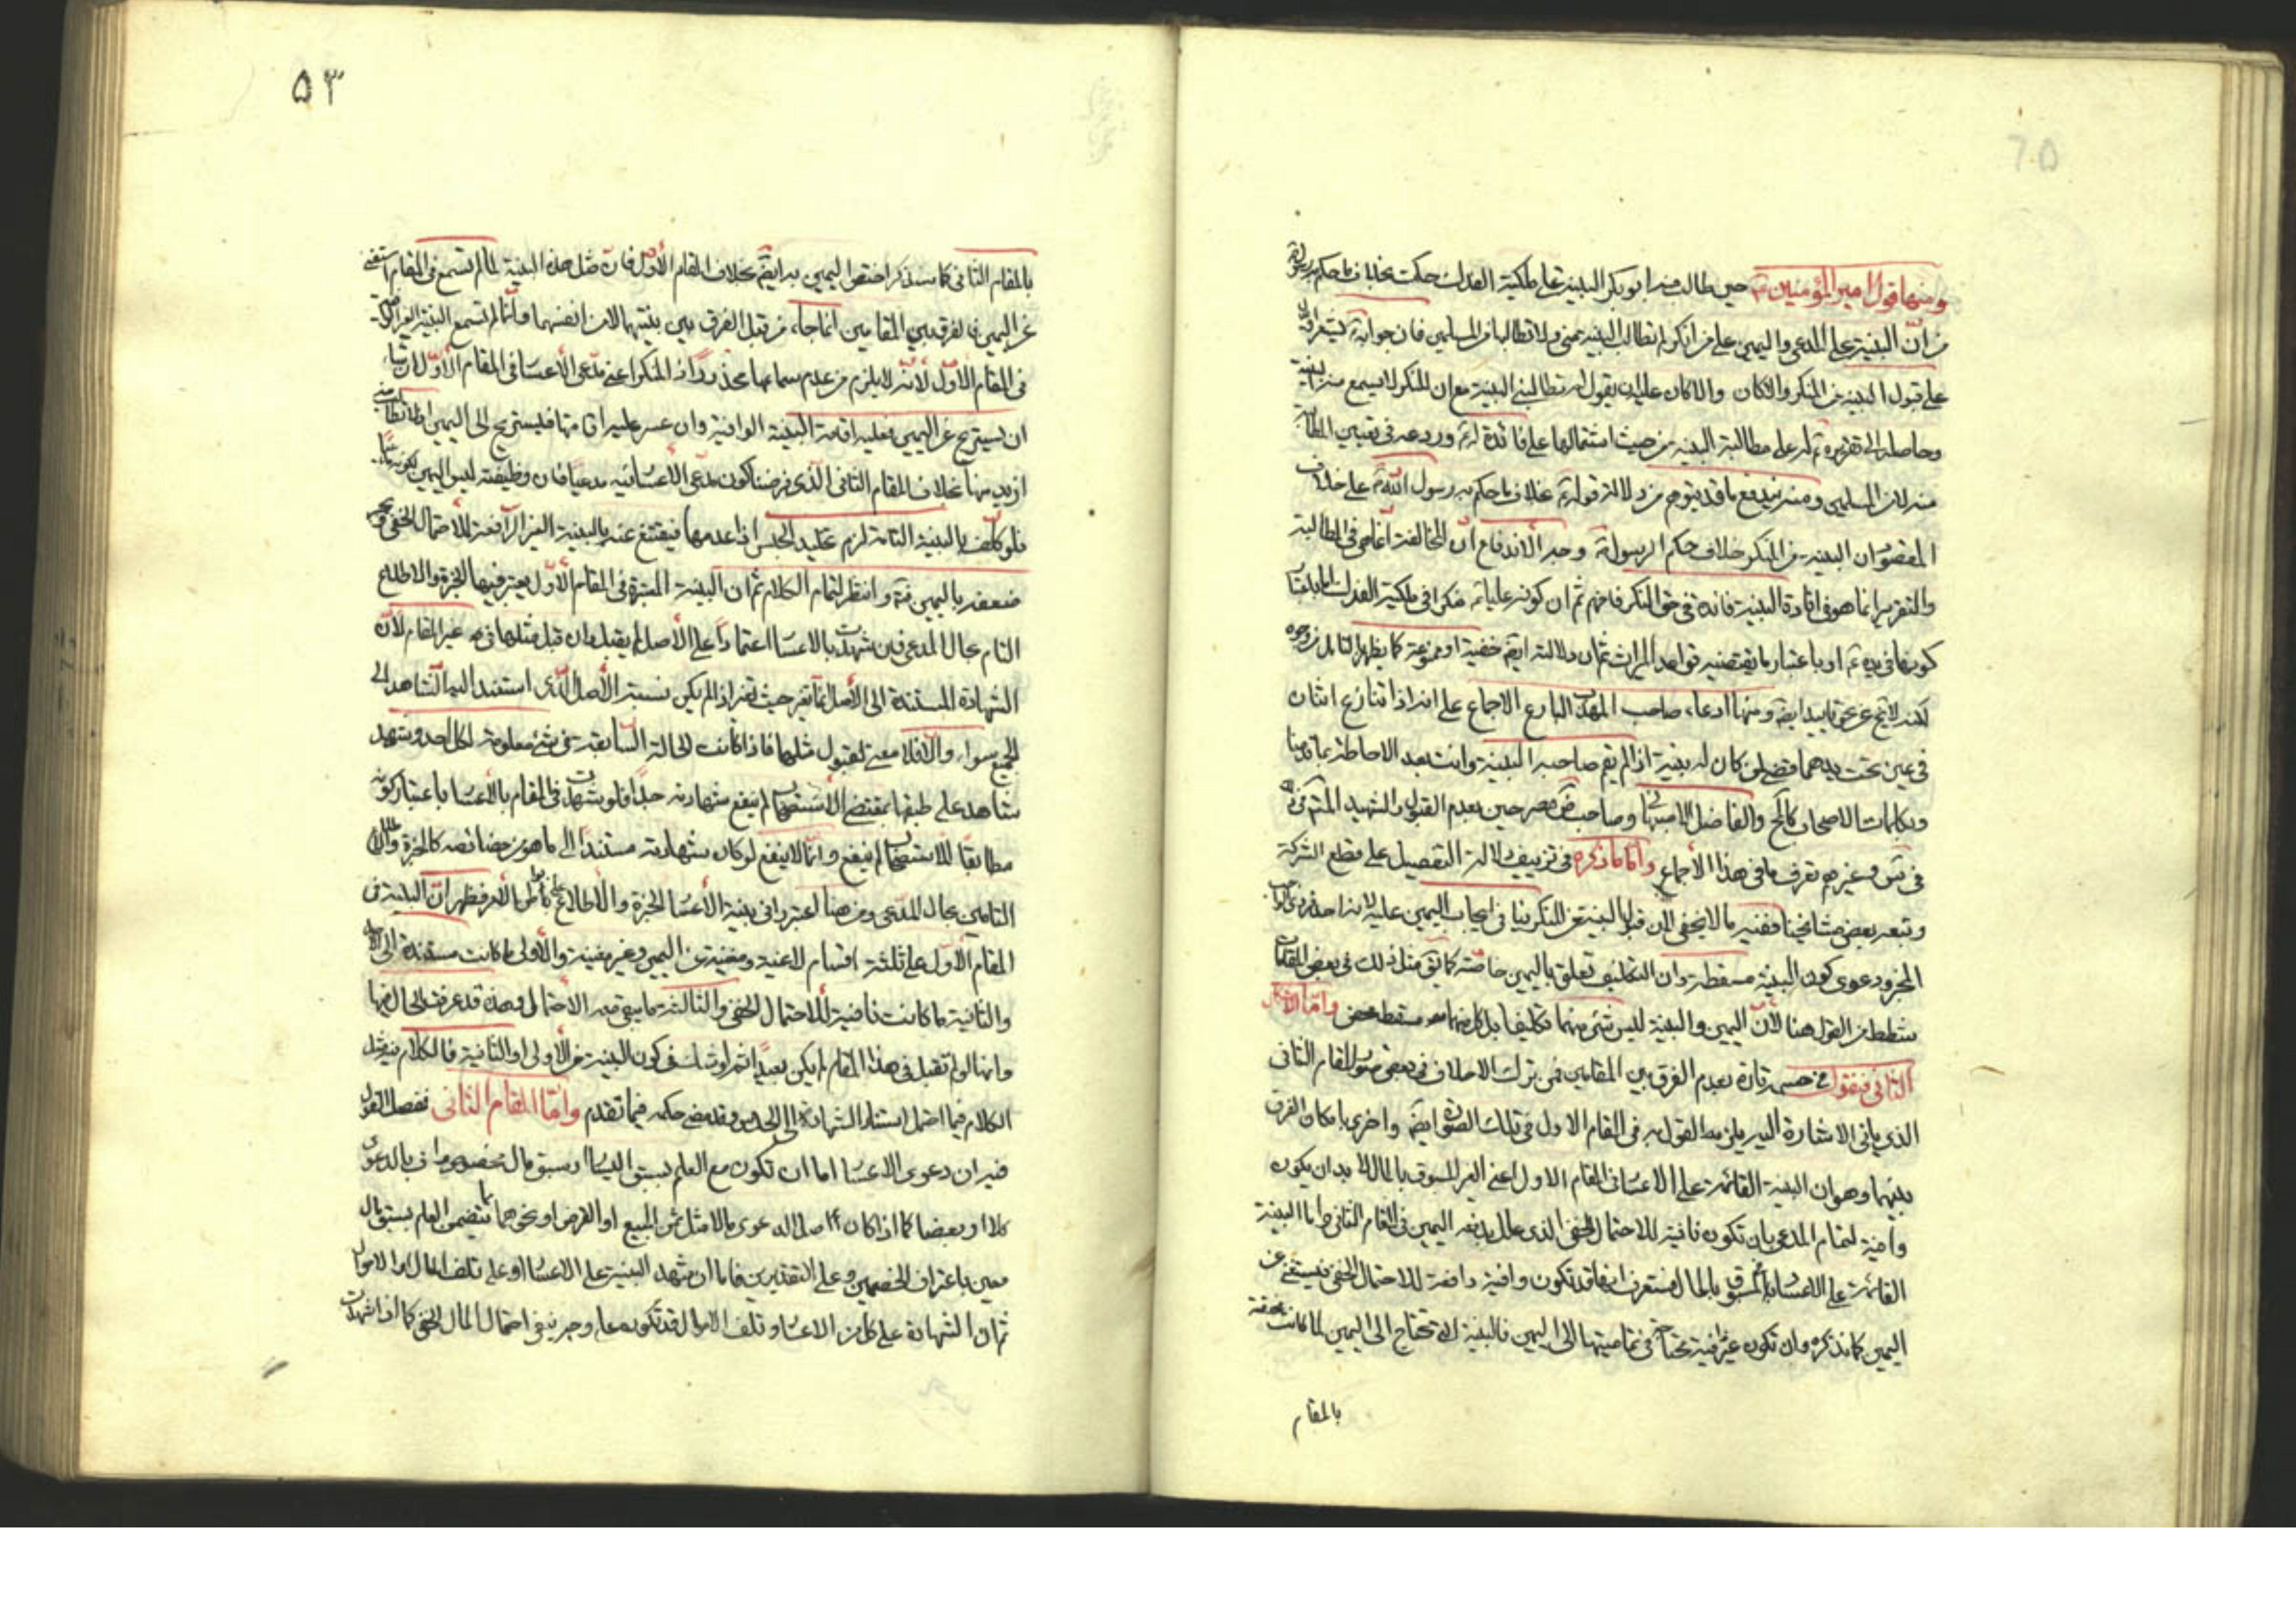 ومنها قول امير المؤمنين ع حين طالب منه ابو بكر البينة على ملكية الفدك حكمت بخلاف ما حكم به رسول الله
من ان البينة على المدعي واليمين على من انكر لم تطالب البينة مني ولا تطالبها من المسلمين فان جوابه
على قبول البينة من المنكر والا كان عليه ان يقول لم تطالبني البينة مع ان المنكر لا يسمع منه البينة
وحاصله الى تقريره له على مطالبة البينة من حيث اشتمالها على فائدة له وردعه في تعيين المطالبة
منه لان المسلمين ومنه يندفع ما قد يتوهم من دلالة قوله خلاف ما حكم به رسول الله على خلاف
المقصود ان البينة من المنكر خلاف حكم الرسول وجه الاندفاع ان المخالفة انما هي في المطالبة
والتقرير انما هو في افادة البينة فائدة في حق المنكر فافهم ثم ان كونه عليا منكرا في ملكية الفدك اما باعتبار
كونها في يده او باعتبار ما يقتضيه قواعد الميراث ثم ان دلالته ايضا خفية او ممنوعة كما يظهر للتأمل من وجوه
لكنه لا يخ عن نحو تاييد ايضا ومنها ادعاء صاحب المهذب البارع الاجماع على انه اذا تنازع اثنان
في عين تحت يدهما قضي لمن كان له بينة اذا لم يقم صاحبه البينة وانت بعد الاحاطة بما قدمنا
وبكلمات الاصحاب كالمحقق والفاضل الاصبهاني وصاحب مصرحين بعدم القبول والشهيد المتوقف
في غيرهم تعرف ما في هذا الاجماع واما ما ذكره في تزييف دلالة التفصيل على قطع الشركة
وتبعه بعض مشايخنا ففيه ما لا يخفى لان قبول البينة من المنكر ينافي ايجاب اليمين عليه لانه احد فردي
المخير ودعوى كون البينة مسقطة وان التكليف تعلق باليمين خاصة كما يق مثل ذلك في بعض المقامات
شطط من القول هنا لان اليمين والبينة ليس شيء منهما تكليفا بل كل منهما مسقط محض واما الاشكال
الثاني فنقول في حسمه تارة بعدم الفرق بين المقامين في ترك الاحلاف في بعض صور المقام الثاني
الذي ياتي الاشارة اليه يلزمه القول به في المقام الاول في تلك الصورة ايضا واخرى بامكان الفرق
بينهما وهو ان البينة القائمة على الاعسار في المقام الاول اعني الغير المسبوق بالمال لا بد ان يكون
وافية لتمام المدعى بان تكون نافية للاحتمال الخفي الذي علل به نفي اليمين في المقام الثاني واما البينة
القائمة على الاعسار المسبوق بالمال فستعرف انها قد تكون وافية دافعة للاحتمال الخفي فيستغني عن
اليمين كما نذكره وان تكون غير وافية محتاجة في تماميتها الى اليمين فالبينة التي تحتاج الى اليمين لما كانت مختصة
بالمقام
٥٣
بالمقام الثاني كما سنذكر اختصوا اليمين به ايضا بخلاف المقام الاول فان مثل هذه البينة لما لم تسمع في المقام استغني
عن اليمين فالفرق بين المقامين انما جاء من قبل الفرق بين بينتيهما لا من انفسهما وانما لم تسمع البينة الغير الوافية
في المقام الاول لانه لا يلزم من عدم سماعها محذور اذ المنكر اعني مدعي الاعسار في المقام الاول ان شاء
ان يستريح عن اليمين فعليه اقامة البينة الوافية وان عسر عليه اقامتها فليستريح الى اليمين
ازيد منها بخلاف المقام الثاني الذي فرضنا كون مدعي الاعسار فيه مدعيا فان وظيفته ليس اليمين لكونه مدعيا
فلو كلف بالبينة التامة لزم تخليد الحبس اذا عدمها فيقتنع عنه بالبينة الغير الرافعة للاحتمال الخفي ويجبر
ضعفه باليمين فتدبر وانتظر لتمام الكلام ثم ان البينة المعتبرة في المقام الاول يعتبر فيها الخبرة والاطلاع
التام بحال المدعي فمن شهدت بالاعسار اعتمادا على الاصل لم يقبل وان قبل مثلها في غير المقام لان
الشهادة المستندة الى الاصل انما تعتبر حيث تفيد اذا لم يكن نسبة الاصل الذي استند اليه الشاهد الى
الجميع سواء والا فلا معنى لقبول مثلها فاذا كانت الحالة السابقة في شيء معلومة لكل احد وشهد
شاهد على طبقها بمقتضى الاستصحاب لم ينفع شهادته جدا فلو شهدت في المقام بالاعسار باعتبار كونه
مطابقا للاستصحاب لم ينفع وانما لا ينفع لو كان شهادته مستندا الى ما هو من خصائصه كالخبرة والاطلاع
التامين بحال المدعي ومن هنا اعتبروا في بينة الاعسار الخبرة والاطلاع على باطن الامر فظهر ان البينة في
المقام الاول على ثلثة اقسام لاغية ومغنية عن اليمين وغير مغنية والاولى ما كانت مستندة الى الاصل
والثانية ما كانت نافية للاحتمال الخفي والثالثة ما يبقى معه الاحتمال وهذه قد عرفت الحال فيها
وانها لو لم تقبل في هذا المقام لم يكن بعيدا ثم لو شك في كون البينة من الاولى او الثانية فالكلام فيه مثل
الكلام فيما احتمل استناد الشهادة الى الحدس وقد مضى حكمه فيما تقدم واما المقام الثاني ففصل القول
فيه ان دعوى الاعسار اما ان تكون مع العلم بسبق اليسار او سبق مال مخصوص واف بالدعوى
كلا او بعضا كما اذا كان اصل الدعوى مالا مثل ثمن المبيع او القرض او نحوهما مما يتضمن العلم بسبق مال
معين باعتراف الخصمين وعلى التقديرين فاما ان يشهد البينة على الاعسار او على تلف المال او الاموال
ثم ان الشهادة على كل من الاعسار وتلف الاموال قد تكون على وجه ينفي احتمال المال الخفي كما اذا شهدت